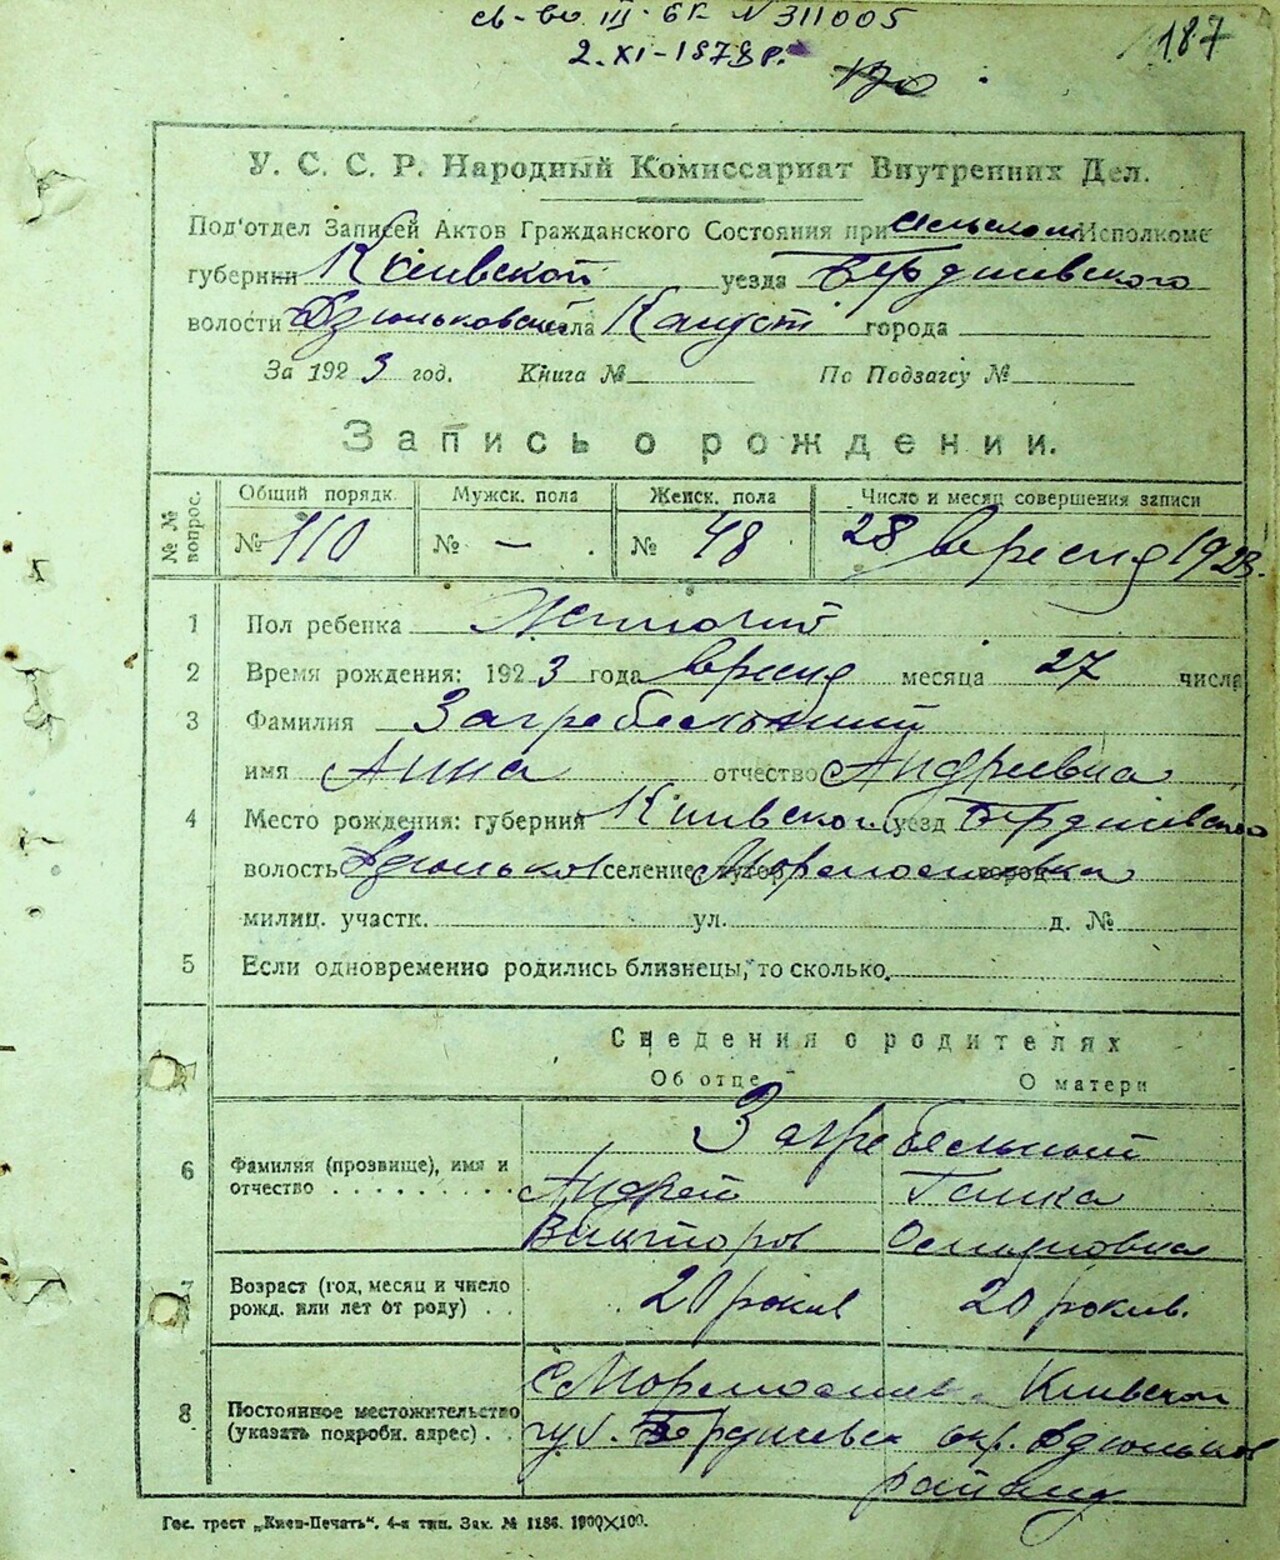 св-во III-БК N 311005
187
2.XI-1978 р.
У. С. С. Р. Народный Комиссариат Внутренних Дел.
Под'отдел Записей Актов Гражданского Состояния при Исполкоме
губернии Киевской уезда Бердичевского
волости Дзюньковской села города
За 1923 год. Книга № По Подзагсу №
Запись о рождении.
№ № вопрос.
Общий порядк. Мужск. пола Женск. пола Число и месяц совершения записи
№ 110 № — . № 48 28 вересня 1923.
1 Пол ребенка Жіночий
2 Время рождения: 1923 года вресня месяца 27 числа
3 Фамилия Загребельний
имя Анна отчество Андріевна
4 Место рождения: губерния Киевской уезд Бердичевского
волость Дзюньков селение, хутор город
милиц. участк. ул. д. №
5 Если одновременно родились близнецы, то сколько.
Сведения о родителях
Об отце О матери
Загребельний
6 Фамилия (прозвище), имя и
отчество . . . . . . . . . Андрей Ганка
Викторов
7 Возраст (год, месяц и число
рожд. или лет от роду) . . 20 років 20 років.
8 Постоянное местожительство
(указать подробн. адрес) . .
с Киевской
губ. Бердичевск окр. Дзюньков
району
Гос. трест „Киев-Печать“. 4-я тип. Зак. № 1186. 1000×100.